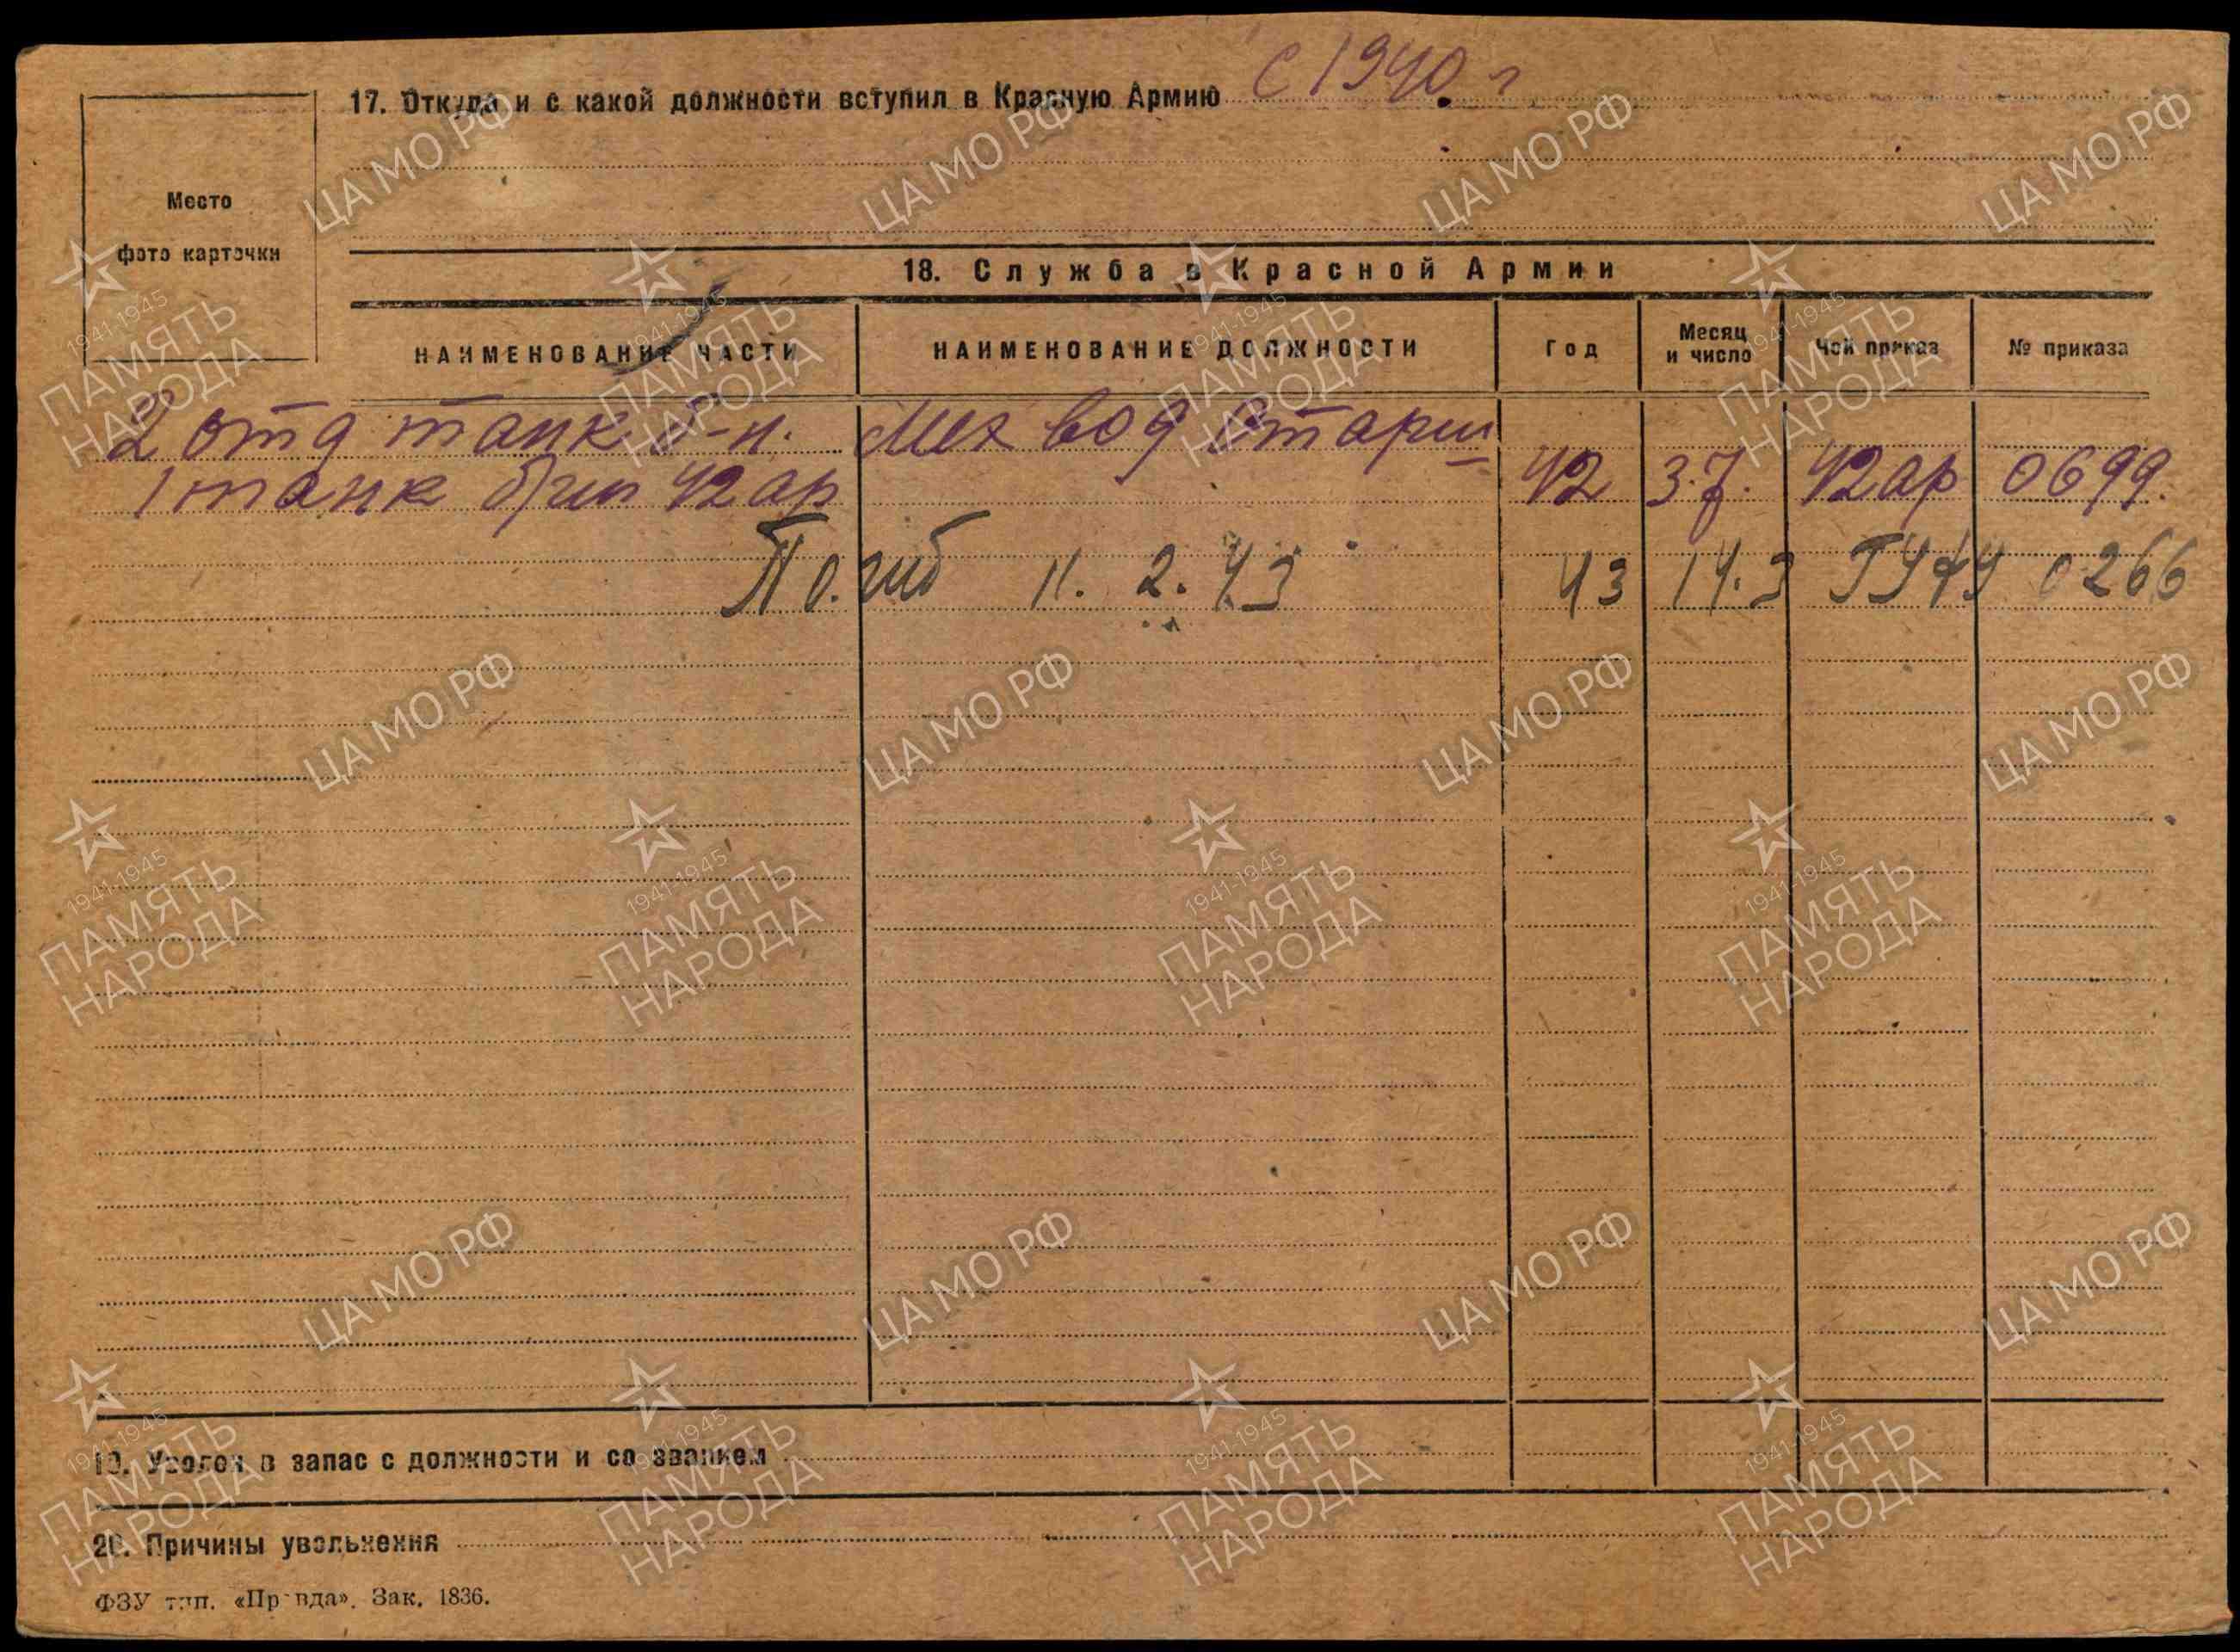 17. Откуда и с какой должности вступил в Красную Армию с 1940 г.
Место
фото карточки
18. Служба в Красной Армии
НАИМЕНОВАНИЕ ЧАСТИ НАИМЕНОВАНИЕ ДОЛЖНОСТИ Год Месяц и число Чей приказ № приказа
2 отд танк б-н. Мех вод старш
1 танк 42 ар 42 3.7. 42 ар 0699.
Погиб 11. 2. 43 43 14.3 ГУФУ 0266
19. Уволен в запас с должности и со званием
20. Причины увольнения
ФЗУ тип. «Правда». Зак. 1836.
ЦА МО РФ
1941-1945
ПАМЯТЬ
НАРОДА